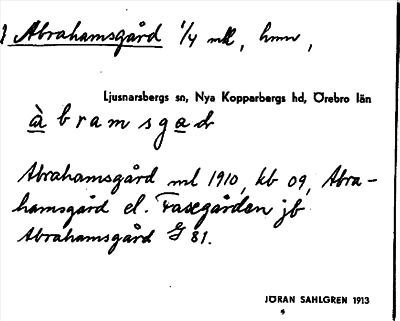 Abrahamsgård 1/4 mtl, hmn,
Ljusnarsbergs sn, Nya Kopparbergs hd, Örebro län
àbramsgad
Abrahamsgård ml 1910, kb 09, Abra-
hamsgård el. Fasegården jb
Abrahamsgård G 81.
JÖRAN SAHLGREN 1913